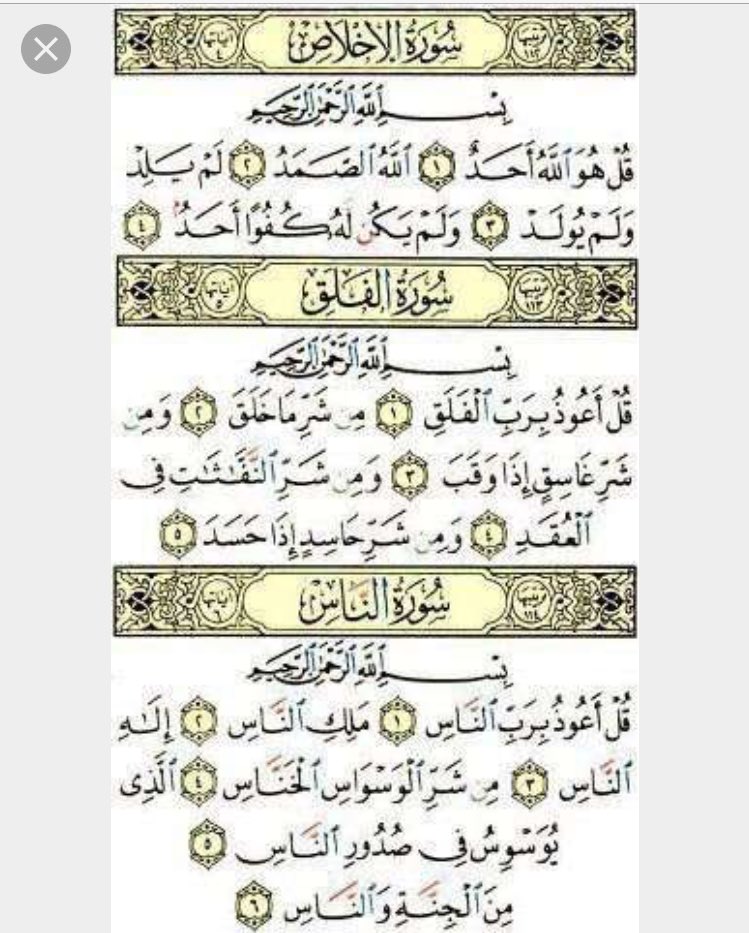 ترتيبها ١١٢ سورة الإخلاص آياتها ٤
بِسْمِ ٱللَّهِ ٱلرَّحْمَٰنِ ٱلرَّحِيمِ
قُلْ هُوَ ٱللَّهُ أَحَدٌ ١ ٱللَّهُ ٱلصَّمَدُ ٢ لَمْ يَلِدْ
وَلَمْ يُولَدْ ٣ وَلَمْ يَكُن لَّهُۥ كُفُوًا أَحَدٌۢ ٤
ترتيبها ١١٣ سُورَةُ الفَلَقِ آياتها ٥
بِسْمِ ٱللَّهِ ٱلرَّحْمَٰنِ ٱلرَّحِيمِ
قُلْ أَعُوذُ بِرَبِّ ٱلْفَلَقِ ١ مِن شَرِّ مَا خَلَقَ ٢ وَمِن
شَرِّ غَاسِقٍ إِذَا وَقَبَ ٣ وَمِن شَرِّ ٱلنَّفَّٰثَٰتِ فِى
ٱلْعُقَدِ ٤ وَمِن شَرِّ حَاسِدٍ إِذَا حَسَدَ ٥
ترتيبها ١١٤ سُورَةُ النَّاسِ آياتها ٦
بِسْمِ ٱللَّهِ ٱلرَّحْمَٰنِ ٱلرَّحِيمِ
قُلْ أَعُوذُ بِرَبِّ ٱلنَّاسِ ١ مَلِكِ ٱلنَّاسِ ٢ إِلَٰهِ
ٱلنَّاسِ ٣ مِن شَرِّ ٱلْوَسْوَاسِ ٱلْخَنَّاسِ ٤ ٱلَّذِى
يُوَسْوِسُ فِى صُدُورِ ٱلنَّاسِ ٥
مِنَ ٱلْجِنَّةِ وَٱلنَّاسِ ٦